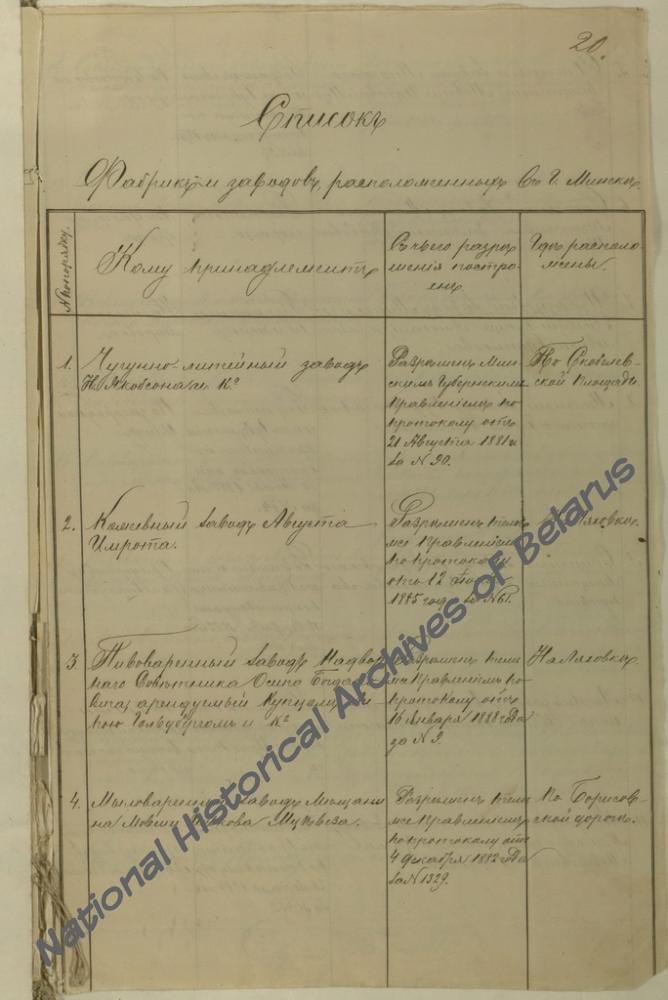 20.
Списокъ
Фабрикъ и заводовъ, расположенныхъ въ г. Минскѣ.
№ попорядку.
Кому принадлежитъ
Съ чьего разрѣ-
шенія построе-
енъ
Гдѣ располо-
жены.
1. Чугунно-литейный заводъ
Н. Якобсона и Кº
Разрѣшенъ Мин-
скимъ Губернскимъ
Правленіемъ по
протоколу отъ
21 Августа 1881 г.
за № 90.
По Скобелев-
ской площади.
2. Кожевный заводъ Августа
Имрота.
Разрѣшенъ тѣмъ
же Правленіемъ
по протоколу
отъ 12
1885 года за № 61.
Ляховкѣ.
3. Пивоваренный заводъ Надвор
наго Совѣтника Осипа Богда
арендуемый Купцомъ
Гольдбергомъ и Кº
Разрѣшенъ тѣм
же Правленіемъ по
протоколу отъ
16 Января 1888 года
за № 9.
На Ляховкѣ.
4. Мыловаренный заводъ Мѣщани
на Мовши
Разрѣшенъ тѣмъ
же Правленіемъ
по протоколу отъ
4 Декабря 1882 года
за № 1329.
По Борисов-
ской дорогѣ.
National Historical Archives of Belarus